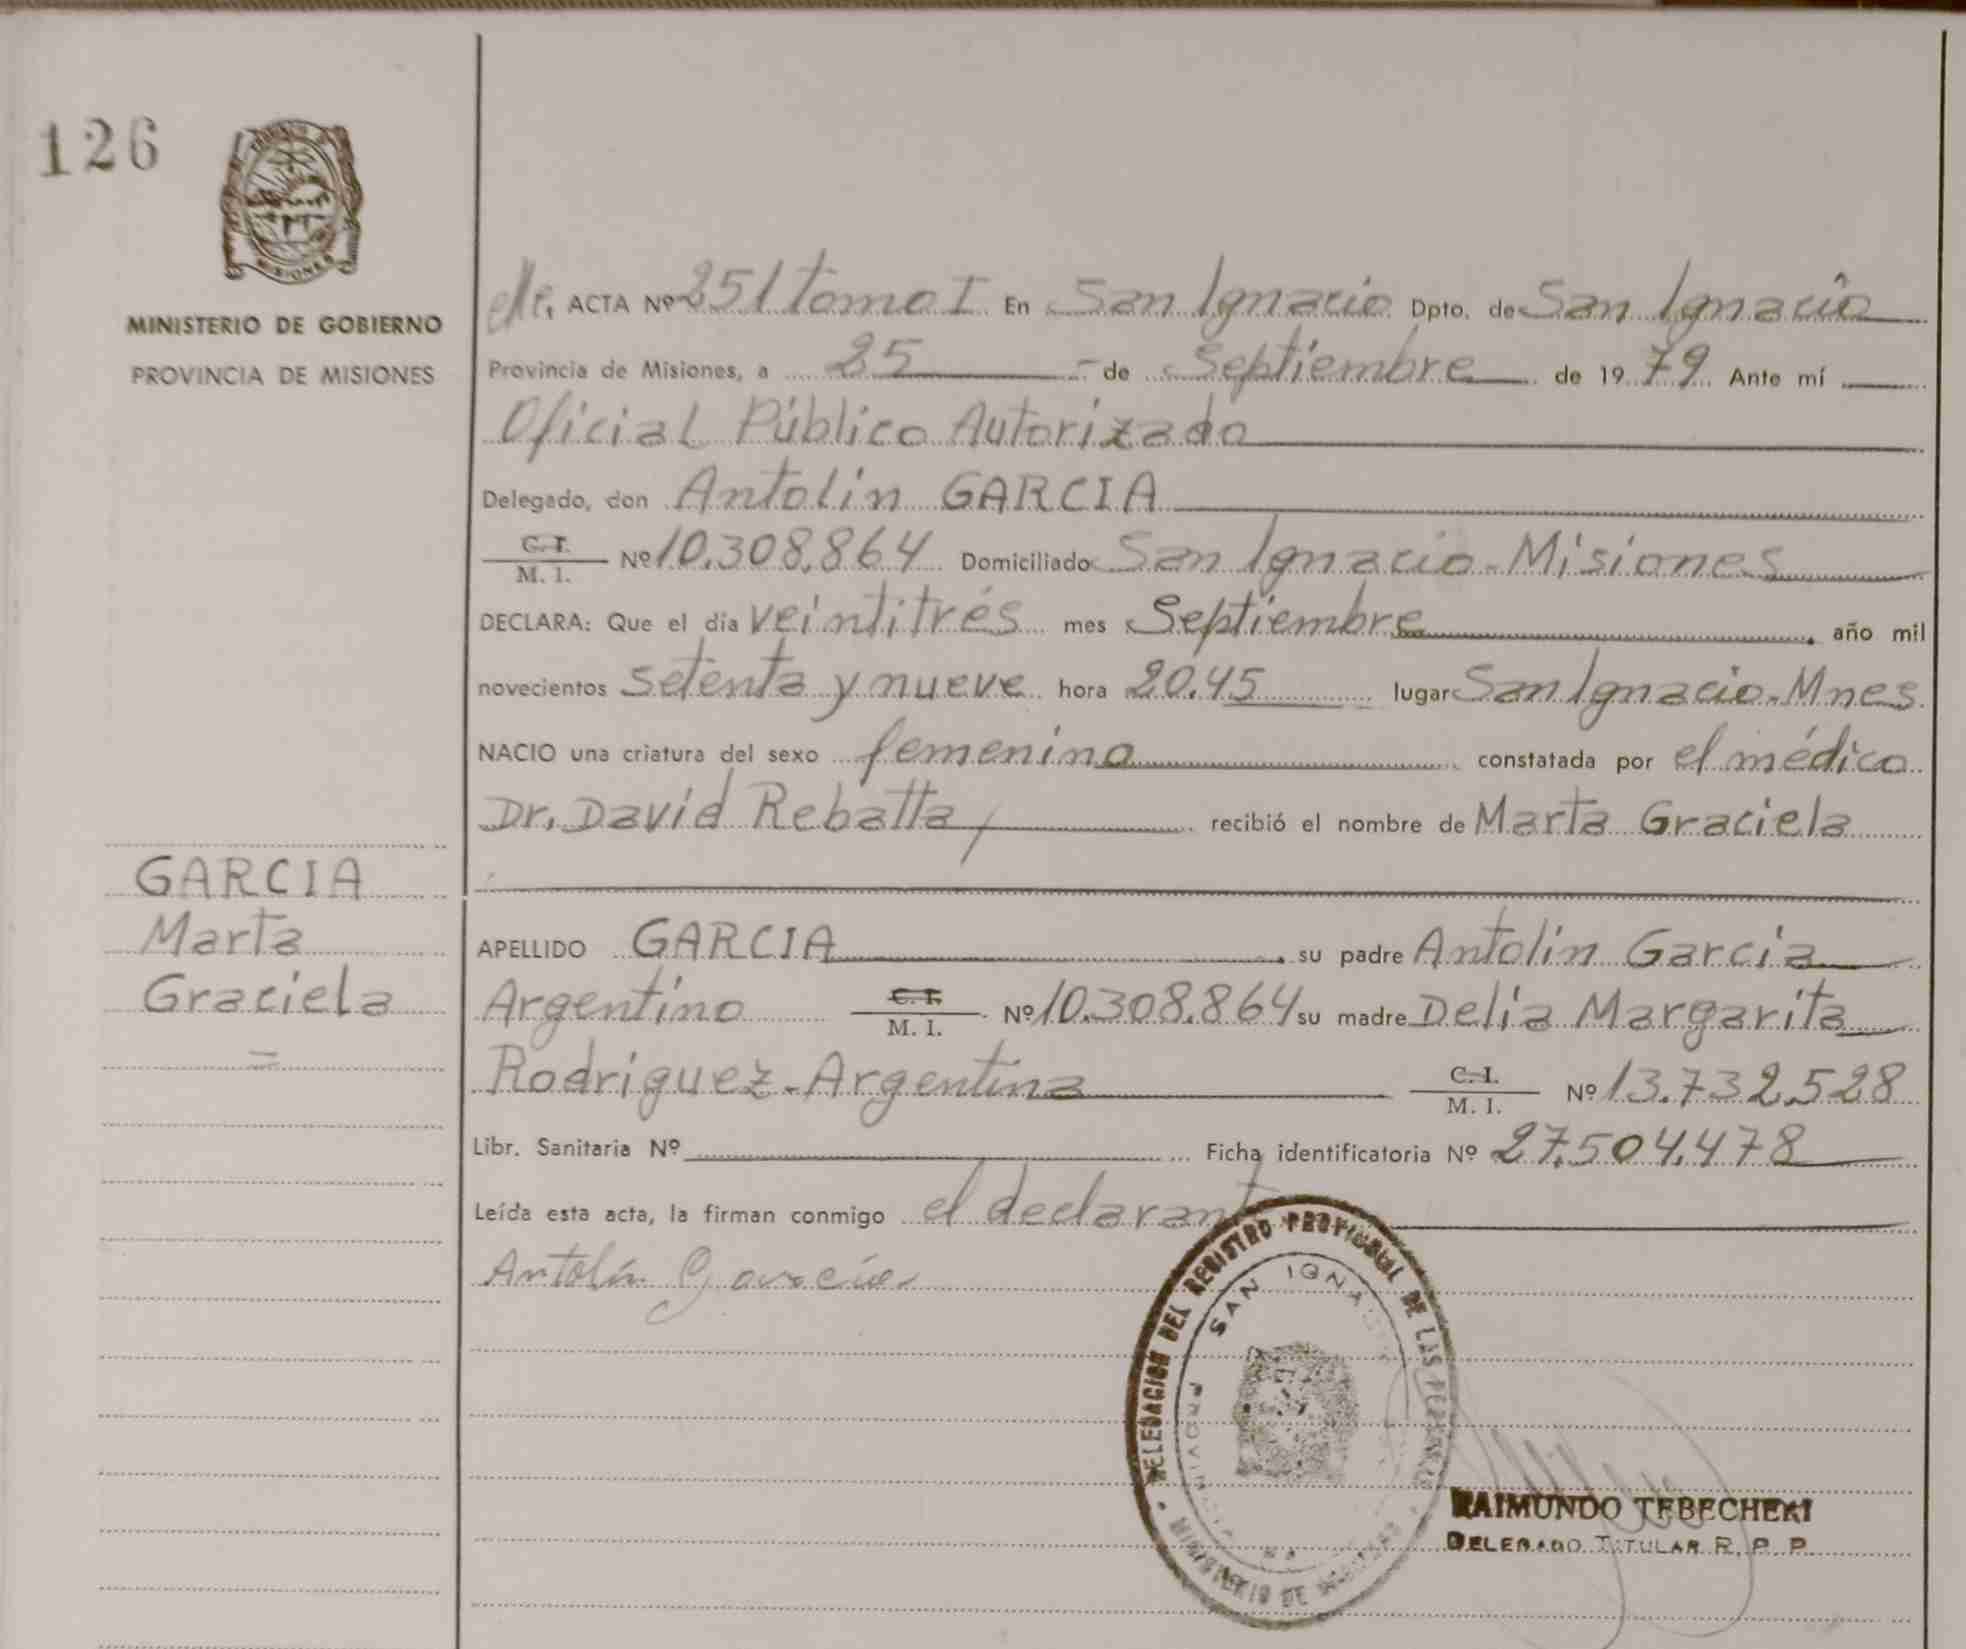 126
MISIONES
MINISTERIO DE GOBIERNO
PROVINCIA DE MISIONES
ACTA Nº 251 tomo I En San Ignacio Dpto. de San Ignacio
Provincia de Misiones, a 25 - de Septiembre de 1979 Ante mí
Oficial Público Autorizado
Delegado, don Antolin GARCIA
C. I.
M. I. Nº 10.308.864 Domiciliado San Ignacio - Misiones
DECLARA: Que el dia veintitrés mes Septiembre año mil
novecientos setenta y nueve hora 20.45 lugar San Ignacio - Mnes
NACIO una criatura del sexo femenino constatada por el médico
Dr. David Rebatta recibió el nombre de Marta Graciela
GARCIA
Marta
Graciela
=
APELLIDO GARCIA su padre Antolín Garcia
Argentino C. I. M. I. Nº 10.308.864 su madre Delia Margarita
Rodriguez - Argentina C. I. M. I. Nº 13.732.528
Libr. Sanitaria Nº Ficha identificatoria Nº 27.504.478
Leída esta acta, la firman conmigo el declarant
Antolín Garcia
DELEGACION DEL REGISTRO PROVINCIAL DE LAS
SAN IGNA
MINISTERIO DE
RAIMUNDO TEBECHERI
DELEGADO TITULAR R. P. P.